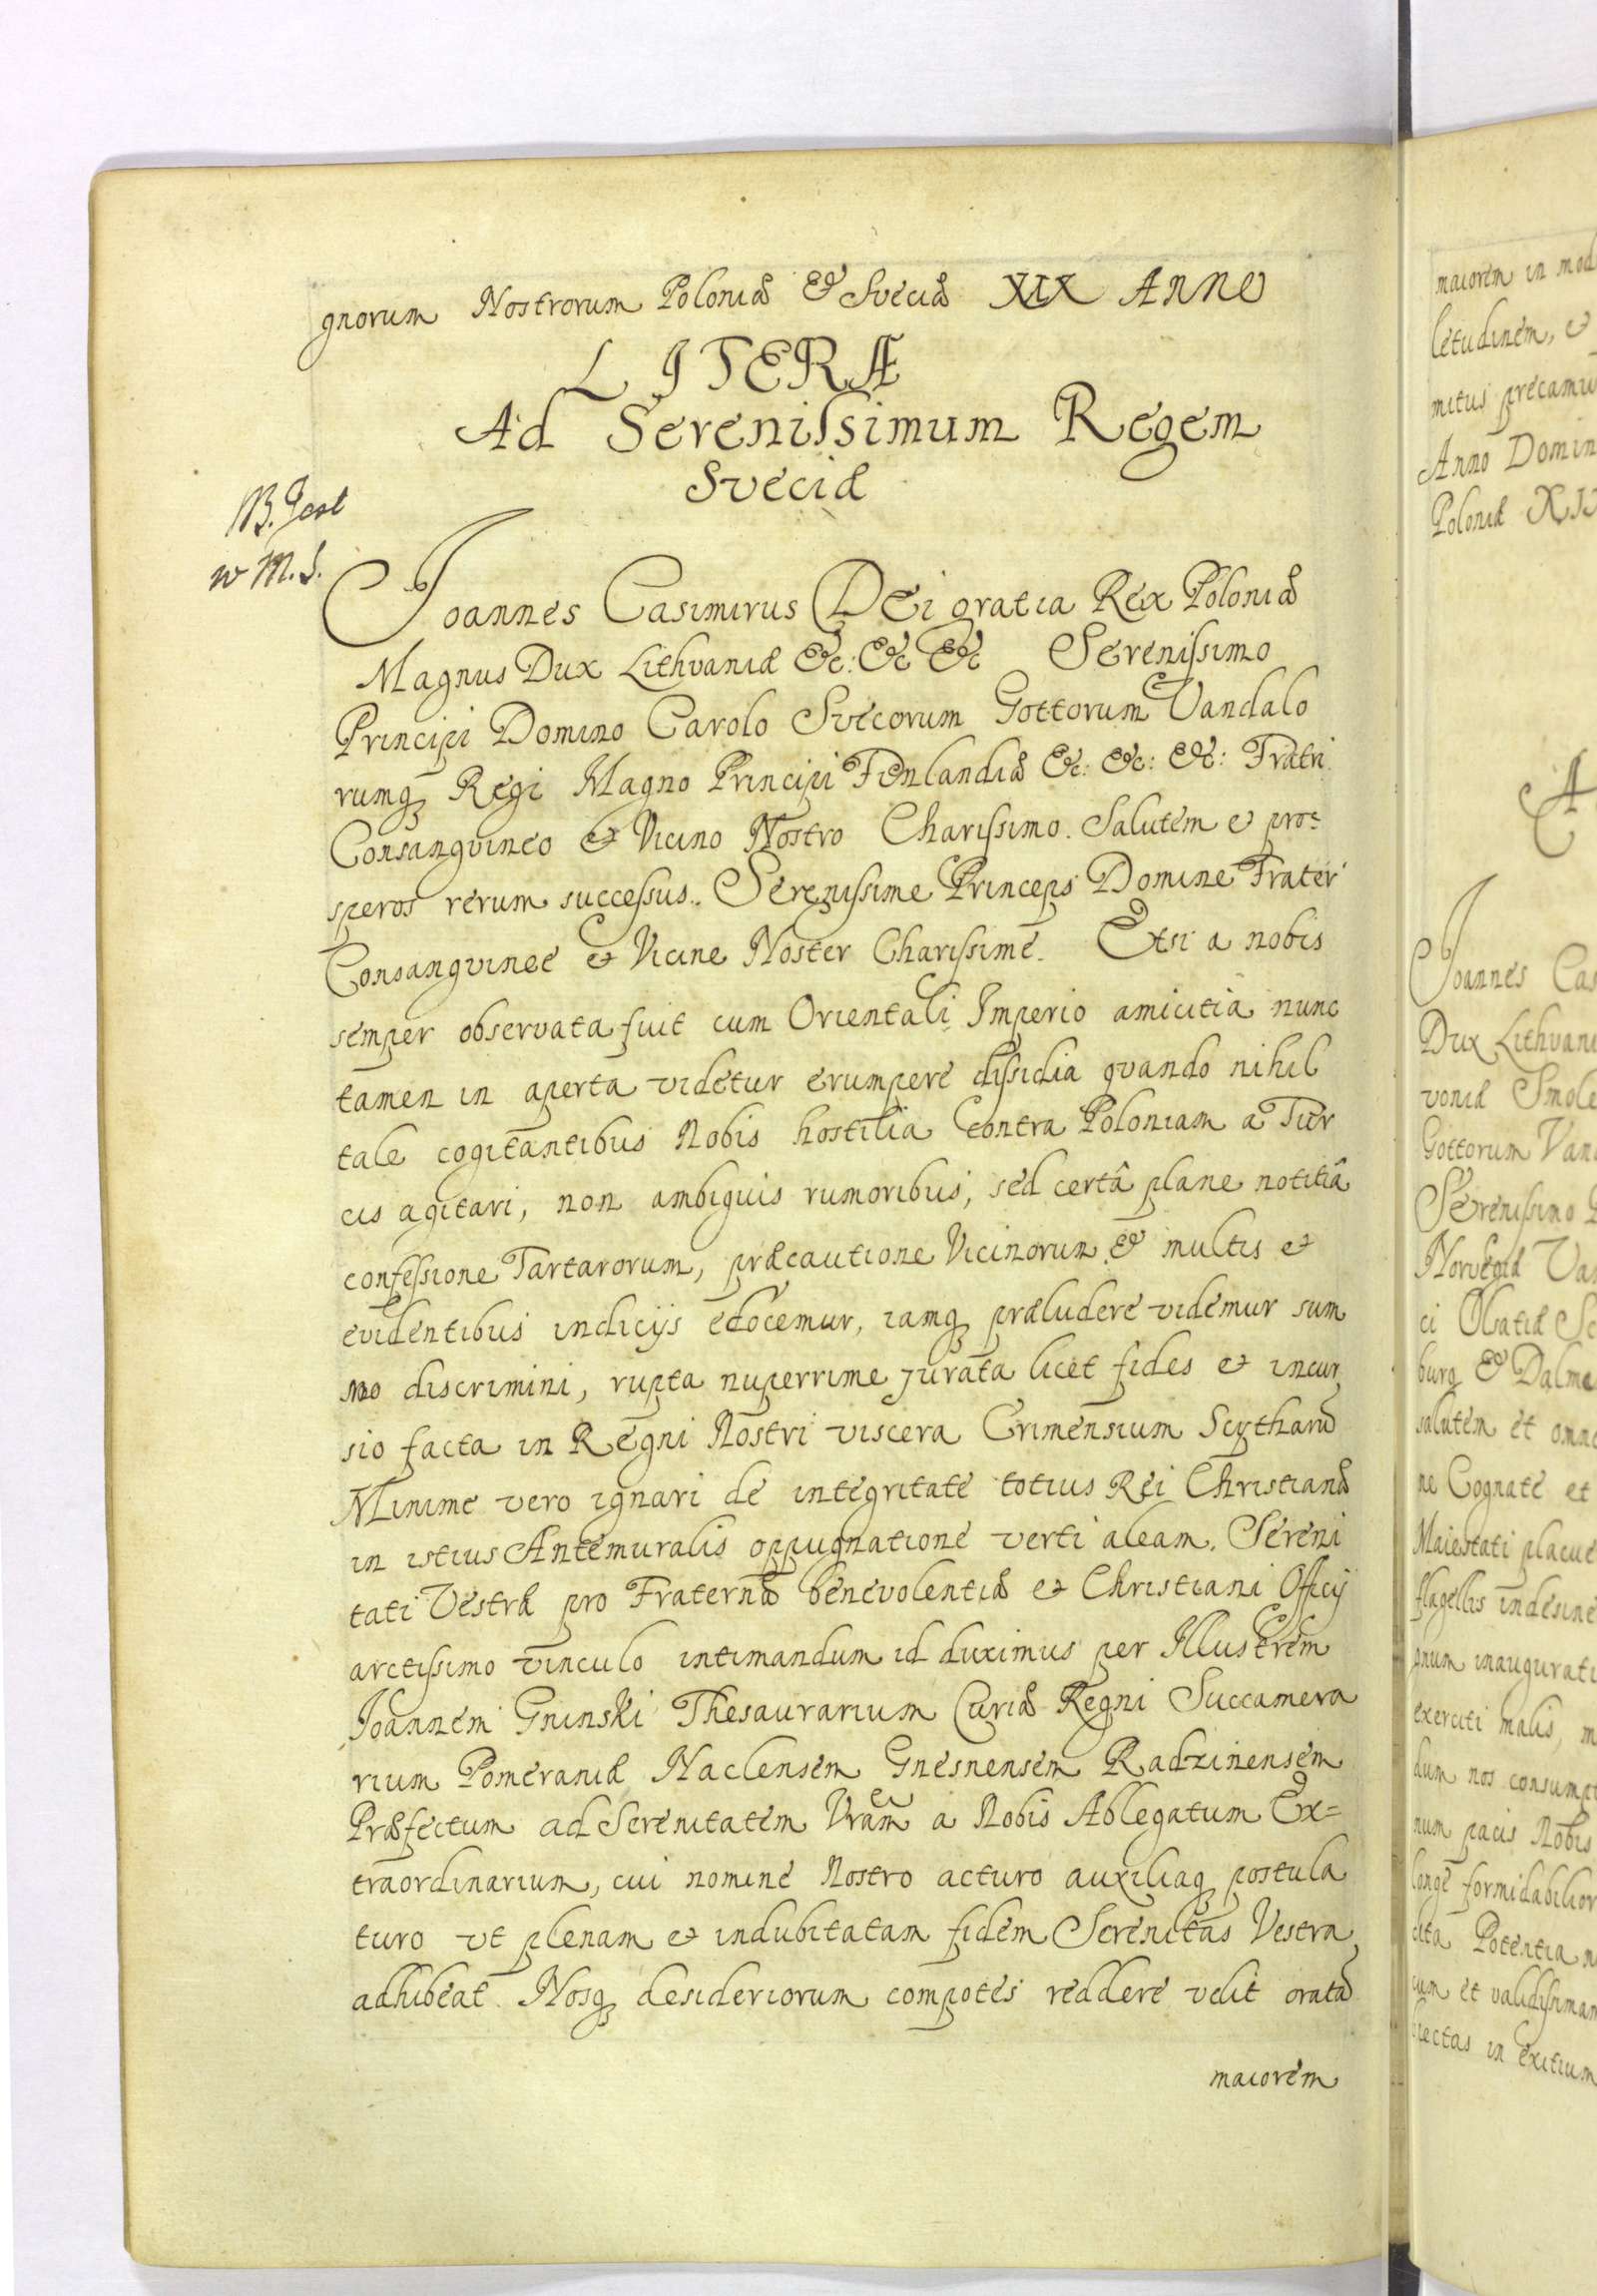 gnorum Nostrorum Poloniæ & Sveciæ XIX Anno
LITERÆ
Ad Serenissimum Regem
Sveciæ
B. Jest
w M.S.
Joannes Casimirus Dei gratia Rex Poloniæ
Magnus Dux Lithvaniæ &c: &c &c Serenissimo
Principi Domino Carolo Svecorum Gottorum Vandalo
rumq Regi Magno Principi Finlandiæ &c: &c: &c: Fratri
Consangvineo & Vicino Nostro Charissimo. Salutem e pro=
speros rerum successus. Serenissime Princeps Domine Frater
Consangvinee & Vicine Noster Charissime. Etsi a nobis
semper observata fuit cum Orientali Imperio amicitia nunc
tamen in aperta videtur erumpere dissidia qvando nihil
tale cogitantibus Nobis hostilia contra Poloniam a Tur
cis agitari, non ambiguis rumoribus, sed certâ plane notitiâ
confessione Tartarorum, præcautione Vicinorum & multis et
evidentibus indicijs edocemur, iamq præludere videmur sum
mo discrimini, rupta nuperrime jurata licet fides et incur
sio facta in Regni Nostri viscera Crimensium Scytharū
Minime vero ignari de integritate totius Rei Christianæ
in istius Antemuralis oppugnatione verti aleam. Sereni
tati Vestræ pro Fraternæ benevolentiæ et Christiani Officij
arctissimo vinculo intimandum id duximus per Illustrem
Joannem Gninski Thesaurarium Curiæ Regni Succamera
rium Pomeraniæ Naclensem Gnesnensem Radzinensem
Præfectum ad Serenitatem Vram a Nobis Ablegatum Ex=
traordinarium, cui nomine Nostro acturo auxiliaq postula
turo vt plenam et indubitatam fidem Serenitas Vestra
adhibeat Nosq desideriorum compotes reddere velit
maiorem
maiorem in mod
letudinem, e
mitus precamu
Anno Domin
Poloniæ
A
Joannes Cas
Dux Lithvani
voniæ Smole
Gottorum Van
Serenissimo
Norvegiæ Va
burg & Dalme
salutem et omne
ne Cognate et
Maiestati placue
flagellis indesine
gnum inaugurati
exerciti malis, m
dum nos consumpt
num pacis Nobis
longe formidabilior
cita Potentia n
cum et validissimam
iectas in exitium